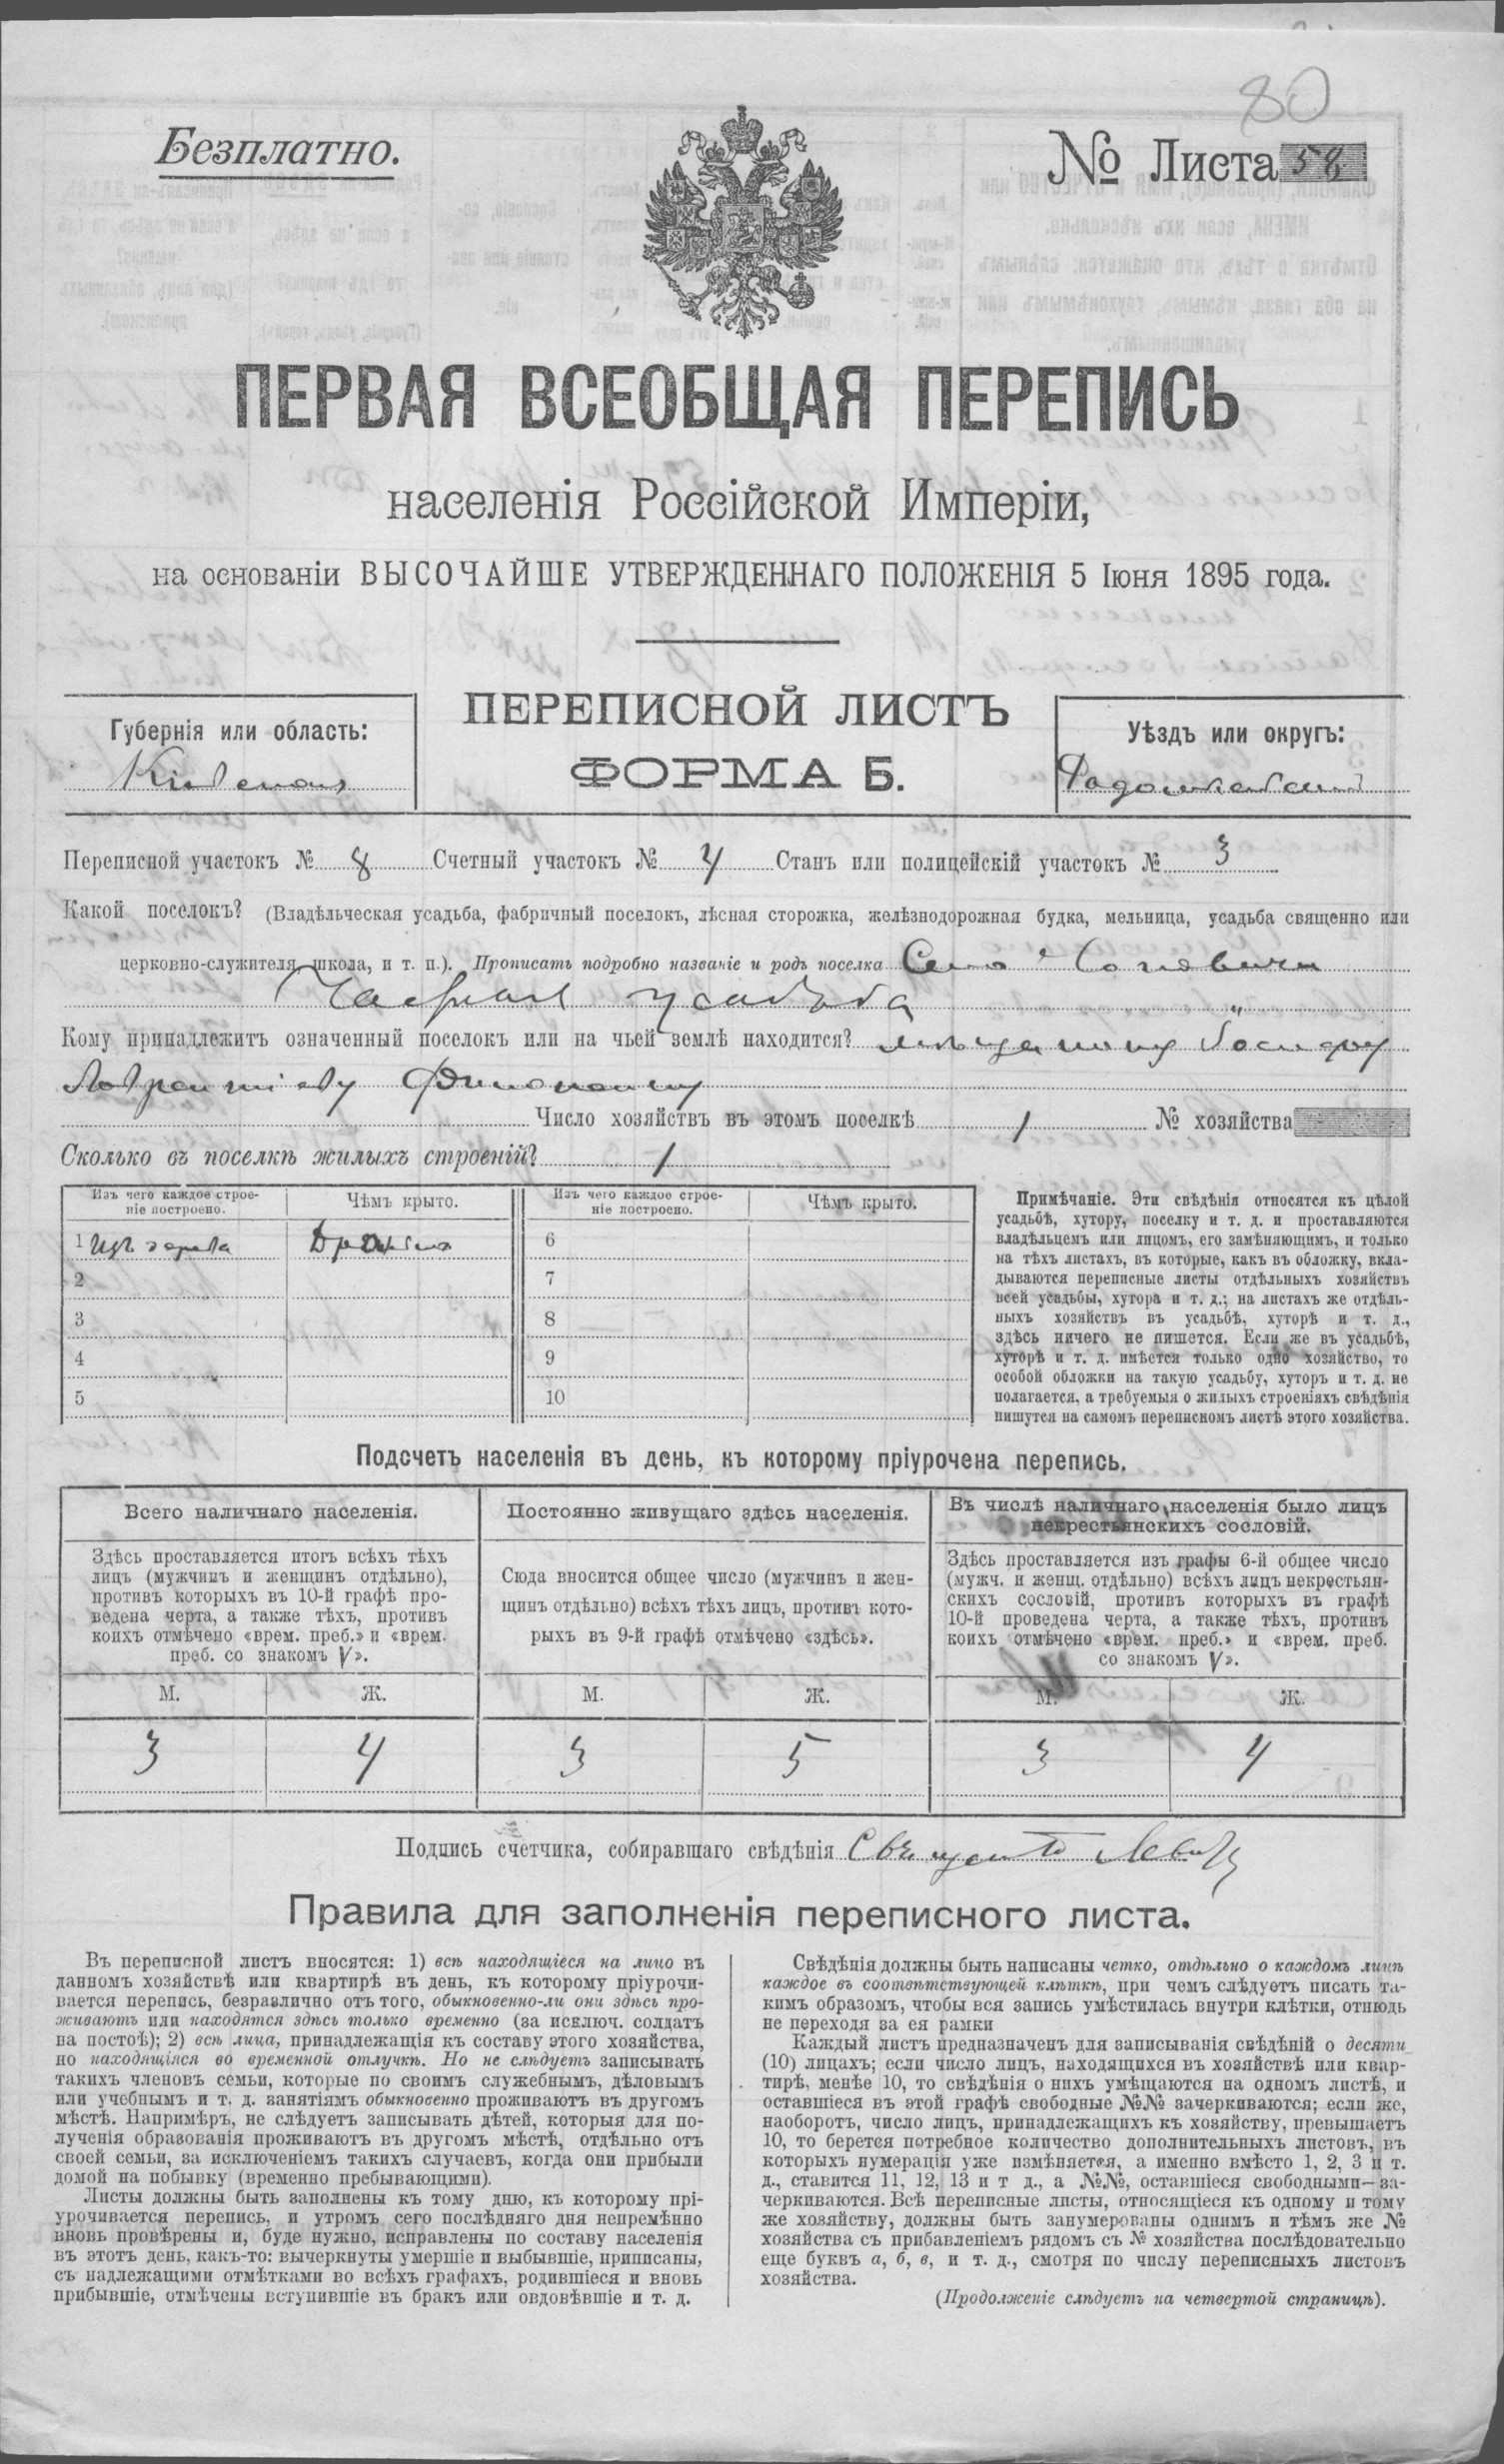 80
Безплатно.
№ Листа 58
ПЕРВАЯ ВСЕОБЩАЯ ПЕРЕПИСЬ
населенія Россійской Имперіи,
на основаніи ВЫСОЧАЙШЕ УТВЕРЖДЕННАГО ПОЛОЖЕНІЯ 5 Іюня 1895 года.
ПЕРЕПИСНОЙ ЛИСТЪ
ФОРМА Б.
Губернія или область:
Кіевская
Уѣздъ или округъ:
Радомысльскій
Переписной участокъ № 8 Счетный участокъ № 4 Станъ или полицейскій участокъ № 3
Какой поселокъ? (Владѣльческая усадьба, фабричный поселокъ, лѣсная сторожка, желѣзнодорожная будка, мельница, усадьба священно или
церковно-служителя, школа, и т. п.). Прописать подробно названіе и родъ поселка Село
усадьба
Кому принадлежитъ означенный поселокъ или на чьей землѣ находится? мѣщанину
Филоненку
Число хозяйствъ въ этомъ поселкѣ 1 № хозяйства
Сколько въ поселкѣ жилыхъ строеній? 1
Изъ чего каждое строе-
ніе построено.
Чѣмъ крыто.
Изъ чего каждое строе-
ніе построено.
Чѣмъ крыто.
1 Изъ дерева
6
2 7
3 8
4 9
5 10
Примѣчаніе. Эти свѣдѣнія относятся къ цѣлой
усадьбѣ, хутору, поселку и т. д. и проставляются
владѣльцемъ или лицомъ, его замѣняющимъ, и только
на тѣхъ листахъ, въ которые, какъ въ обложку, вкла-
дываются переписные листы отдѣльныхъ хозяйствъ
всей усадьбы, хутора и т. д.; на листахъ же отдѣль-
ныхъ хозяйствъ въ усадьбѣ, хуторѣ и т. д.,
здѣсь ничего не пишется. Если же въ усадьбѣ,
хуторѣ и т. д. имѣется только одно хозяйство, то
особой обложки на такую усадьбу, хуторъ и т. д. не
полагается, а требуемыя о жилыхъ строеніяхъ свѣдѣнія
пишутся на самомъ переписномъ листѣ этого хозяйства.
Подсчетъ населенія въ день, къ которому пріурочена перепись.
Всего наличнаго населенія.
Здѣсь проставляется итогъ всѣхъ тѣхъ
лицъ (мужчинъ и женщинъ отдѣльно),
противъ которыхъ въ 10-й графѣ про-
ведена черта, а также тѣхъ, противъ
коихъ отмѣчено «врем. преб.» и «врем.
преб. со знакомъ V».
Постоянно живущаго здѣсь населенія.
Сюда вносится общее число (мужчинъ и жен-
щинъ отдѣльно) всѣхъ тѣхъ лицъ, противъ кото-
рыхъ въ 9-й графѣ отмѣчено «здѣсь».
Въ числѣ наличнаго населенія было лицъ
некрестьянскихъ сословій.
Здѣсь проставляется изъ графы 6-й общее число
(мужч. и женщ. отдѣльно) всѣхъ лицъ некрестьян-
скихъ сословій, противъ которыхъ въ графѣ
10-й проведена черта, а также тѣхъ, противъ
коихъ отмѣчено «врем. преб.» и «врем. преб.
со знакомъ V».
М. Ж. М. Ж. М. Ж.
3 4 3 5 3 4
Подпись счетчика, собиравшаго свѣдѣнія
Правила для заполненія переписного листа.
Въ переписной листъ вносятся: 1) всѣ находящіеся на лицо въ
данномъ хозяйствѣ или квартирѣ въ день, къ которому пріурочи-
вается перепись, безразлично отъ того, обыкновенно-ли они здѣсь про-
живаютъ или находятся здѣсь только временно (за исключ. солдатъ
на постоѣ); 2) всѣ лица, принадлежащія къ составу этого хозяйства,
но находящіяся во временной отлучкѣ. Но не слѣдуетъ записывать
такихъ членовъ семьи, которые по своимъ служебнымъ, дѣловымъ
или учебнымъ и т. д. занятіямъ обыкновенно проживаютъ въ другомъ
мѣстѣ. Напримѣръ, не слѣдуетъ записывать дѣтей, которыя для по-
лученія образованія проживаютъ въ другомъ мѣстѣ, отдѣльно отъ
своей семьи, за исключеніемъ такихъ случаевъ, когда они прибыли
домой на побывку (временно пребывающими).
Листы должны быть заполнены къ тому дню, къ которому прі-
урочивается перепись, и утромъ сего послѣдняго дня непремѣнно
вновь провѣрены и, буде нужно, исправлены по составу населенія
въ этотъ день, какъ-то: вычеркнуты умершіе и выбывшіе, приписаны,
съ надлежащими отмѣтками во всѣхъ графахъ, родившіеся и вновь
прибывшіе, отмѣчены вступившіе въ бракъ или овдовѣвшіе и т. д.
Свѣдѣнія должны быть написаны четко, отдѣльно о каждомъ лицѣ
каждое въ соотвѣтствующей клѣткѣ, при чемъ слѣдуетъ писать та-
кимъ образомъ, чтобы вся запись умѣстилась внутри клѣтки, отнюдь
не переходя за ея рамки
Каждый листъ предназначенъ для записыванія свѣдѣній о десяти
(10) лицахъ; если число лицъ, находящихся въ хозяйствѣ или квар-
тирѣ, менѣе 10, то свѣдѣнія о нихъ умѣщаются на одномъ листѣ, и
оставшіеся въ этой графѣ свободные №№ зачеркиваются; если же,
наоборотъ, число лицъ, принадлежащихъ къ хозяйству, превышаетъ
10, то берется потребное количество дополнительныхъ листовъ, въ
которыхъ нумерація уже измѣняется, а именно вмѣсто 1, 2, 3 и т.
д., ставится 11, 12, 13 и т д., а №№, оставшіеся свободными—за-
черкиваются. Всѣ переписные листы, относящіеся къ одному и тому
же хозяйству, должны быть занумерованы однимъ и тѣмъ же №
хозяйства съ прибавленіемъ рядомъ съ № хозяйства послѣдовательно
еще буквъ а, б, в, и т. д., смотря по числу переписныхъ листовъ
хозяйства.
(Продолженіе слѣдуетъ на четвертой страницѣ).